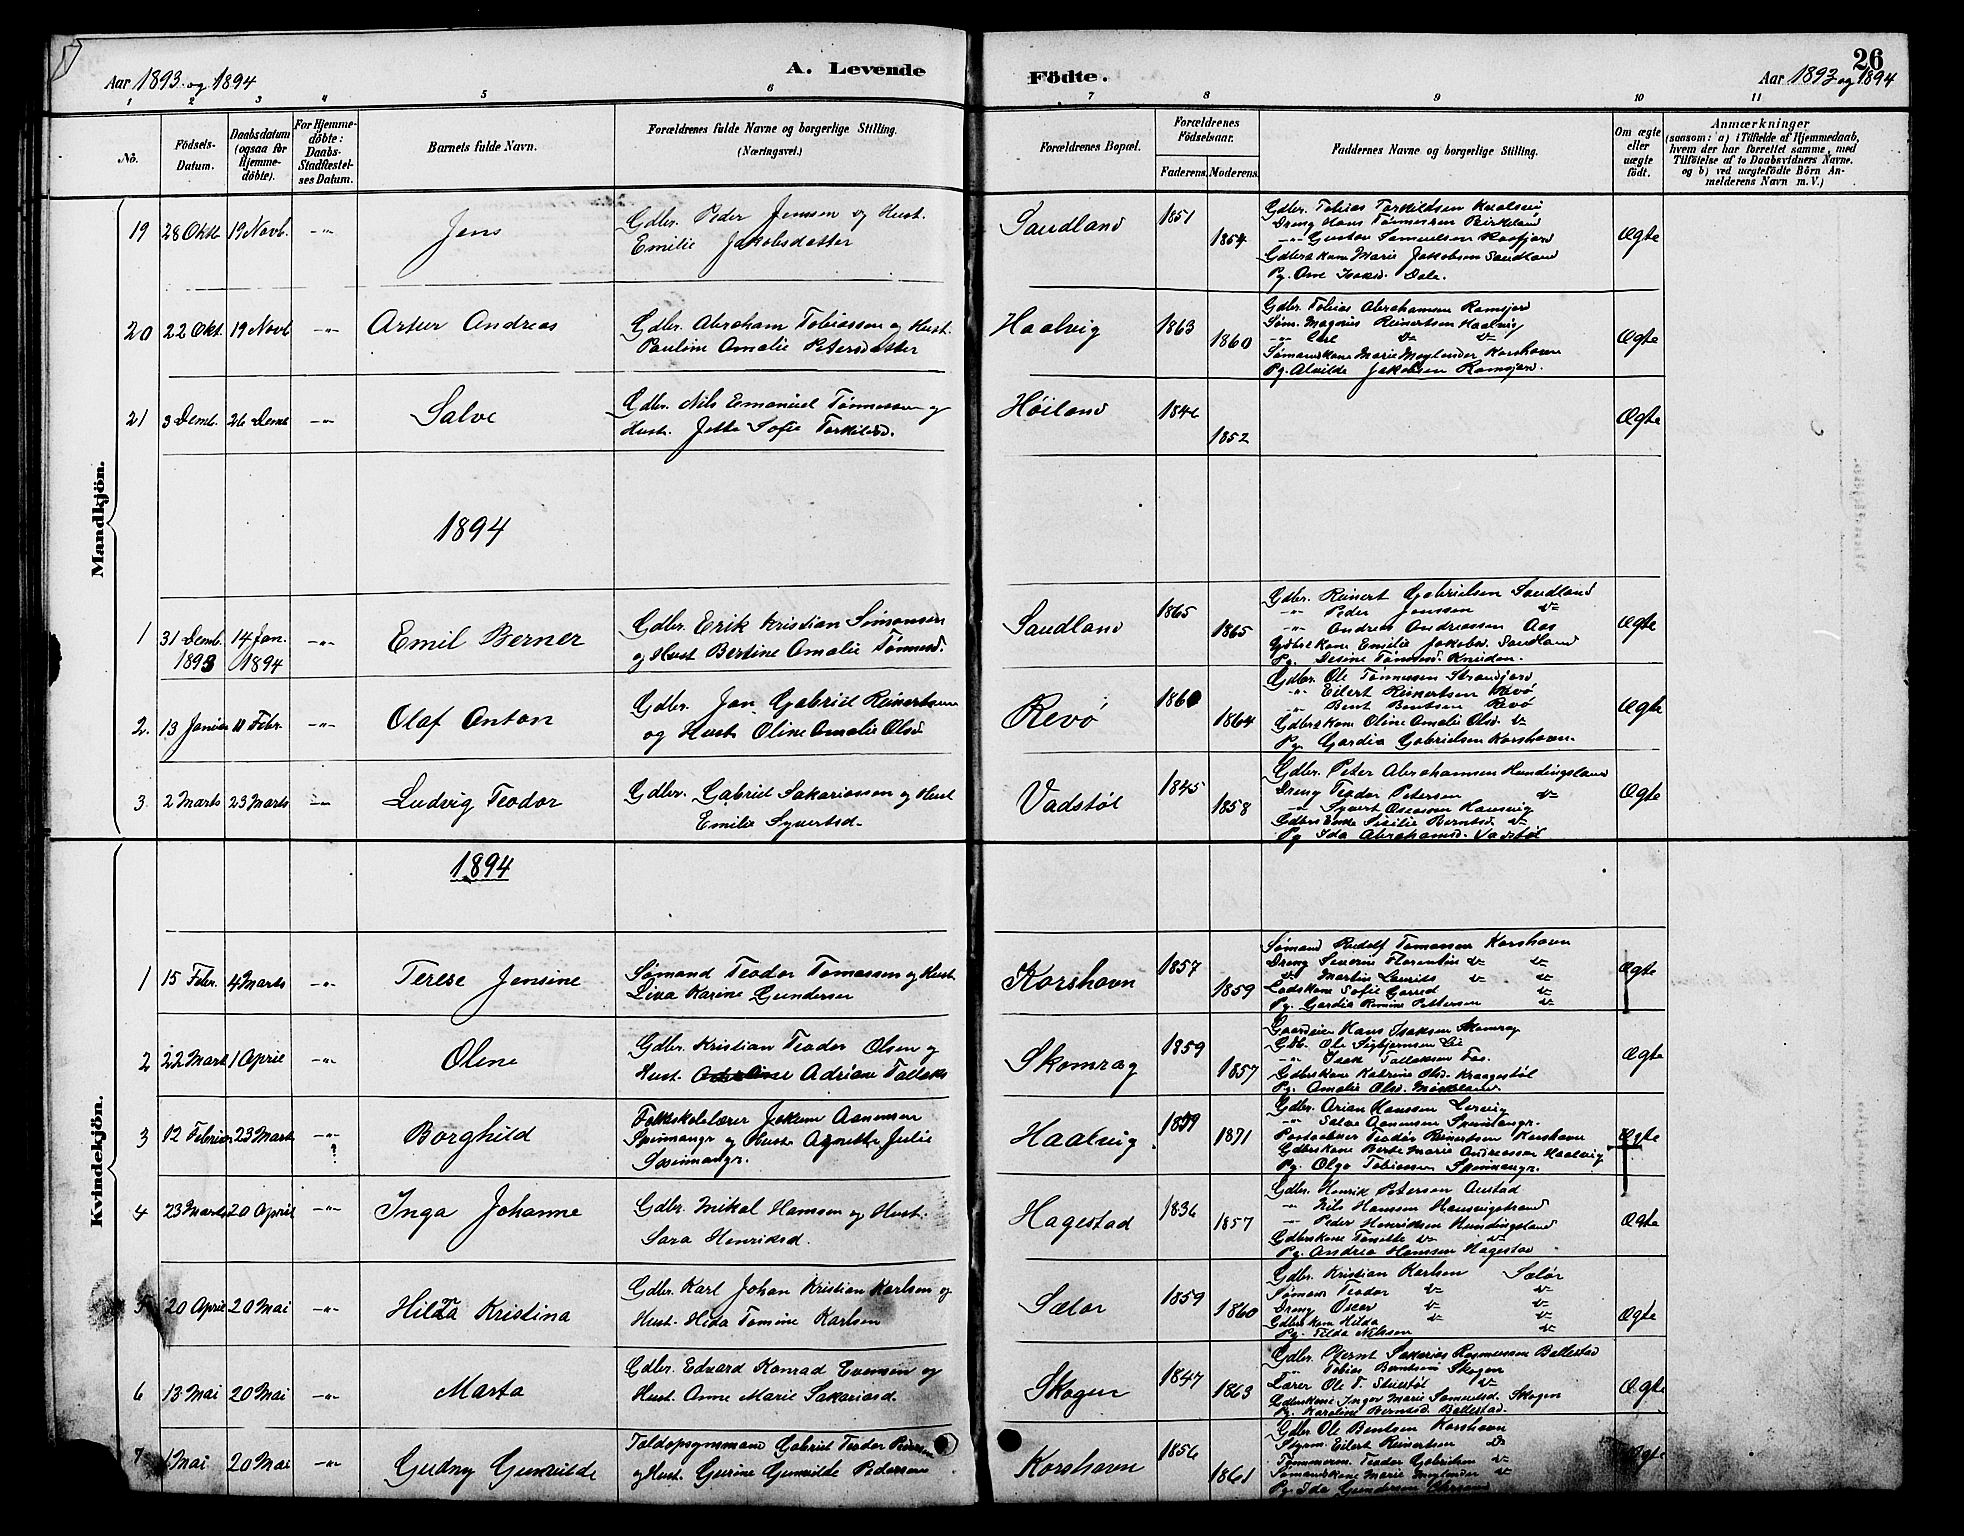 Aar 1893 og 1894
A. Levende
Födte.
26
Aar 1893 og 1894
1 2 3 4 5 6 7 8 9 10 11
No.
Födsels-Datum.
Daabsdatum (ogsaa for Hjemme-döbte).
For Hjemme-döbte: Daabs-Stadfæstel-ses Datum.
Barnets fulde Navn.
Forældrenes fulde Navne og borgerlige Stilling.
(Næringsvei.)
Forældrenes Bopæl.
Forældrenes Födselsaar.
Faderens. Moderens.
Faddernes Navne og borgerlige Stilling.
Om ægte eller uægte födt.
Anmærkninger
(saasom: a) i Tilfælde af Hjemmedaab, hvem der har forrettet samme, med Tilföielse af to Daabsvidners Navne. og b) ved uægtefödte Börn An-melderens Navn m. V.)
Mandkjön.
19 28 Oktb. 19 Novb. -"- Jens
Gdbr. Peder Jenssen og Hust.
Emilie Jakobsdatter
Sandland 1851 1854
Gdbr. Tobias Torkildsen
Dreng Hans Tønnessen Birkeland
-"- Gustav Samuelsen
Gdberskone Marie Jakobsen Sandland
Pg. Ane Isaksd. Dale.
Ægte
20 22 Okt. 19 Novb -"- Artur Andreas
Gdbr. Abraham Tobiassen og Hust.
Pauline Amalie Petersdatter
Haalvig 1863 1860
Gdbr. Tobias Abrahamsen Ramsjord
Søm. Magnus Reinertsen Haalvig
-"- Carl do do
Sømandskone Marie Meylender Korshavn
Pg. Alvilde Jakobsen Ramsjord.
Ægte
21 3 Demb. 26 Demb -"- Salve
Gdbr. Nils Emanuel Tønnessen og
Hust. Jette Sofie Torkilsd.
Høiland 1846 1852
Ægte
1894
1 31 Demb. 1893 14 Jan. 1894 -"- Emil Berner
Gdbr. Erik Kristian Simonsen
og Hust Bertine Amalie Tønnesd.
Sandland 1865 1865
Gdbr. Reinert Gabrielsen Sandland
-"- Peder Jenssen do
-"- Andreas Andreassen Aas
Gdberskone Emilie Jakobsd. Sandland
Pg. Desine Tønnesd. Kneiden.
Ægte
2. 13 Januar 11 Febr. -"- Olaf Anton
Gdbr. Jon Gabriel Reinertsen
og Hust Oline Amalie Olsd
Revø 1860 1864
Gdbr. Ole Tønnessen Strandjord
-"- Eilert Reinertsen Revø
-"- Bent Bentsen Revø
Gdberskone Oline Amalie Olsd. do
Pg. Gardia Gabrielsen Korshavn.
Ægte
3. 2 Marts 23 Marts -"- Ludvig Teodor
Gdbr. Gabriel Sakariassen og Hust
Emilie Syvertsd.
Vadstøl 1845 1858
Gdbr. Peter Abrahamsen Hundingsland
Dreng Teodor Petersen do
-"- Syvert Oseasen Hausvig
Gdberskone Sesilie Berntsd. do
Pg Ida Abrahamsd. Vadstøl
Ægte
Kvindekjön.
1894
1 15 Febr. 4 Marts -"- Terese Jensine
Sømand Teodor Tomassen og Hust
Lisa Karine Gundersen
Korshavn 1857 1859
Sømand Rudolf Tomassen Korshavn
Dreng Severin Florentin do do
do Martin Laurits do do
Lodskone Sofie do
Pg. Gardia Romine Pettersen do
Ægte
2 22 Marts 1 April -"- Olene
Gdbr. Kristian Teodor Olsen og
Hust. Adriane Tallaks
Skomrag 1859 1857
Gaardeier Hans Isaksen Skomrag
Gdb. Ole Sigbjørnsen Lie
-"- Isak Tallaksen Fos.
Gdberskone Katrine Olsd. Kraagestøl
Pg. Amalie Olsd.
Ægte
3 12 Februar 23 Marts -"- ? Borghild
Folkeskolelærer Jokum Aanensen
Spinnangr og Hust Agnethe Julie
Spinnangr.
Haalvig 1859 1871
Gdbr. Arian Hanssen Lervig
-"- Salve Aanensen Spinnangr.
Postaabner Teodor Reinertsen Korshavn
Gdberskone Berte Marie Andreassen Haalvig
Pg. Olga Tobiassen Spinnangr.
Ægte
4 23 Marts 20 April -"- Inga Johanne
Gdbr. Mikal Hansen og Hust.
Sara Henriksd.
Hagestad 1836 1857
Gdbr. Henrik Petersen Austad
-"- Nils Hanssen Hausvigstrand
-"- Peder Henriksen Hundingsland
Gdberskone Tonette do do
Pg. Andrea Hanssen Hagestad
Ægte
5 20 April 20 Mai -"- Hilda Kristina
Gdbr. Karl Johan Kristian Karlsen og
Hust. Hilda Tomine Karlsen
Sælør 1859 1860
Gdbr. Kristian Karlsen Sælør
Sømand Teodor do do
Dreng Oscar do do
Gdberskone Hilda do do
Pg. Tilda Nilssen do
Ægte
6 13 Mai 20 Mai -"- Marta
Gdbr. Edvard Konrad Evensen og
Hust. Anne Marie Sakariasd.
Skogen 1847 1863
Gdbr. Bernt Sakarias Rasmussen Ballestad
-"- Tobias Berntsen Skogen
Lærer Ole T. do
Gdberskone Inger Marie Samuelsd. Skogen
Pg. Karoline Berntsd. Ballestad.
Ægte
7 1 Mai 20 Mai -"- Gudny Gunvilde
Toldopsynsmand Gabriel Teodor Pedersen
og Hust. Gurine Gunvilde Pedersen
Korshavn 1856 1861
Gdbr Ole Bentsen Korshavn
Styrm. Eilert Reinertsen do
Tømmerm. Teodor Gabrielsen do
Sømandskone Marie Meylender do
Pg Ida Gundersen
Ægte